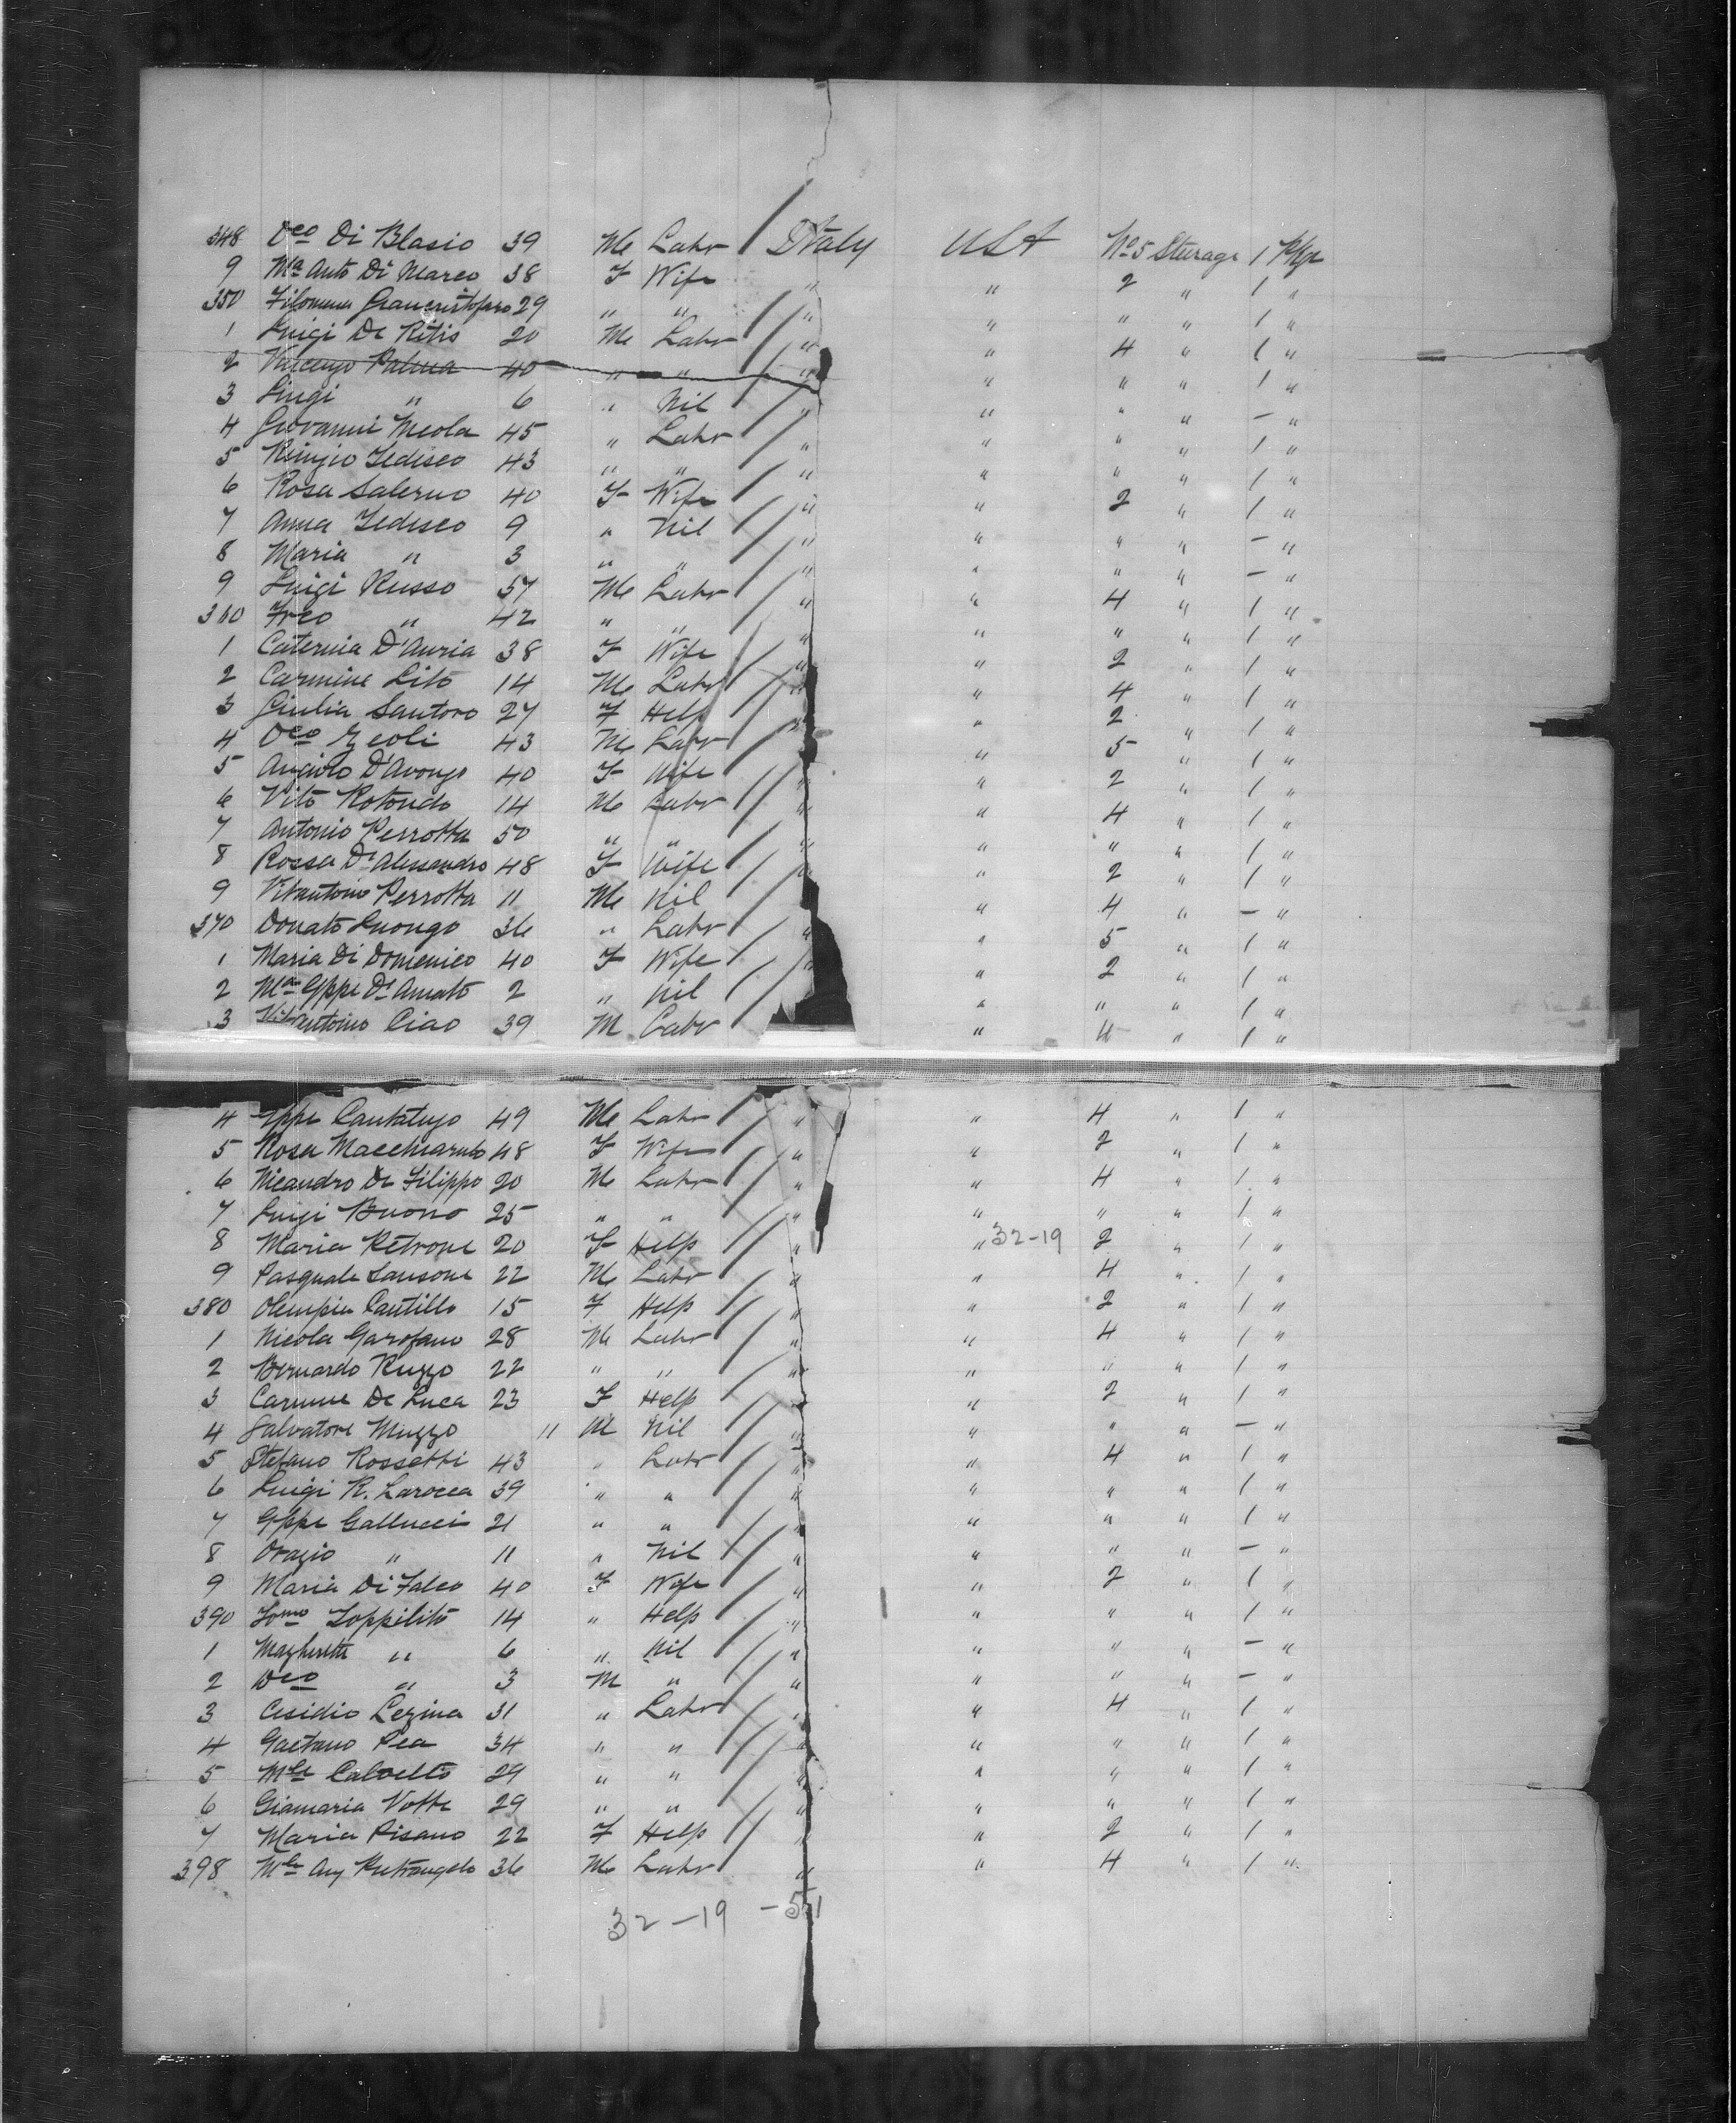 348 Dco Di Blasio 39 M Labr / Italy USA No 5 Steerage 1 Pkge
9 Ma Anto Di Marco 38 F Wife / " " 2 " 1 "
350 Filomena Giancristofaro 29 " " / " " " " 1 "
1 Luigi De Ritis 20 M Labr / " " 4 " 1 "
2 Vincenzo Palma 40 " " / " " " " 1 "
3 Luigi " 6 " Nil / " " " " — "
4 Giovanni Meola 45 " Labr / " " " " 1 "
5 Tedisco 43 " " / " " " " 1 "
6 Rosa Salerno 40 F Wife / " " 2 " 1 "
7 Anna Tedisco 9 " Nil / " " " " — "
8 Maria " 3 " " / " " " " — "
9 Luigi Russo 57 M Labr / " " 4 " 1 "
360 Frco " 42 " " / " " " " 1 "
1 Caterina D'Auria 38 F Wife / " " 2 " 1 "
2 Carmine Lito 14 M Labr / " " 4 " 1 "
3 Giulia Santoro 27 F Help / " " 2 " 1 "
4 Dco Zeoli 43 M Labr / " " 5 " 1 "
5 40 F Wife / " " 2 " 1 "
6 Vito Rotondo 14 M Labr / " " 4 " 1 "
7 Antonio Perrotta 50 " " / " " " " 1 "
8 Rossa D'Alessandro 48 F Wife / " " 2 " 1 "
9 Vitantonio Perrotta 11 M Nil / " " 4 " — "
370 Donato Luongo 36 " Labr / " " 5 " 1 "
1 Maria Di Domenico 40 F Wife / " " 2 " 1 "
2 Ma Gppe D'Amato 2 " Nil / " " " 1 "
3 Vitantonio Ciao 39 M Labr " 4 " 1 "
4 Gppe 49 M Labr / " " 4 " 1 "
5 Rosa Macchiarulo 48 F Wife / " " 2 " 1 "
6 Nicandro De Filippo 20 M Labr / " " 4 " 1 "
7 Luigi Buono 25 " " / " " " " 1 "
8 Maria Petrone 20 F Help / " " 32-19 2 " 1 "
9 Pasquale Sansone 22 M Labr / " " 4 " 1 "
380 Olimpia Cantillo 15 F Help / " " 2 " 1 "
1 Nicola Garofano 28 M Labr / " " 4 " 1 "
2 Bernardo Ruzzo 22 " " / " " " 1 "
3 Carmine De Luca 23 F Help / " " 2 " 1 "
4 Salvatore Muzzo 11 M Nil / " " " " — "
5 Stefano Rossetti 43 " Labr / " " 4 " 1 "
6 Luigi R. Larocca 39 " " / " " " " 1 "
7 Gppe Gallucci 21 " " / " " " " 1 "
8 Orazio " 11 " Nil / " " " " — "
9 Maria Di Falco 40 F Wife / " " 2 " 1 "
390 Loppilito 14 " Help / " " " " 1 "
1 Magheritta " 6 " Nil / " " " " — "
2 Dco " 3 M " / " " " " — "
3 Cesidio Lezina 31 " Labr / " " 4 " 1 "
4 Gaetano Pea 34 " " / " " " " 1 "
5 Mle Calvelto 29 " " / " " " " 1 "
6 Giamaria Votta 29 " " / " " " " 1 "
7 Maria Pisano 22 F Help / " " 2 " 1 "
398 Mle Ang Pietrangelo 36 M Labr " " 4 " 1 "
32-19 -551